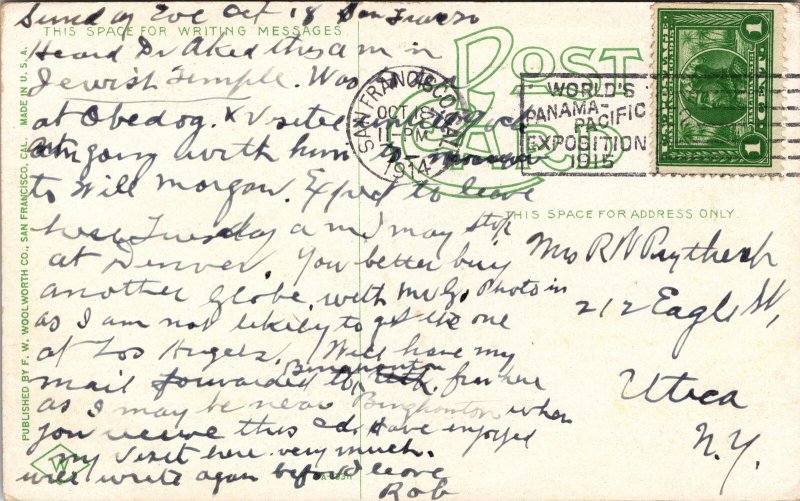 Sunday Eve Oct 18 San Franco
THIS SPACE FOR WRITING MESSAGES
Heard Dr Aked this a m in
Jewish Temple. Was
at Obed og. & Visited
am going with him to
to Will Morgan. Expect to leave
here Tuesday a m I may stop
at Denver. You better buy
another Globe, with Photos in
as I am not likely to get the one
at Los Angeles. Will have my
mail forwarded to Binghamton from here
as I may be near Binghamton when
you receive this card. Have enjoyed
my visit here very much.
will write again before I leave
Rob
POST
CARD
SAN FRANCISCO, CAL.
OCT 18
11-PM
1914
WORLD'S
PANAMA-
PACIFIC
EXPOSITION
1915
1 CENT 1
THIS SPACE FOR ADDRESS ONLY.
Mrs R W Prytherch
212 Eagle St,
Utica
N.Y.
PUBLISHED BY F. W. WOOLWORTH CO., SAN FRANCISCO, CAL. MADE IN U. S. A.
W